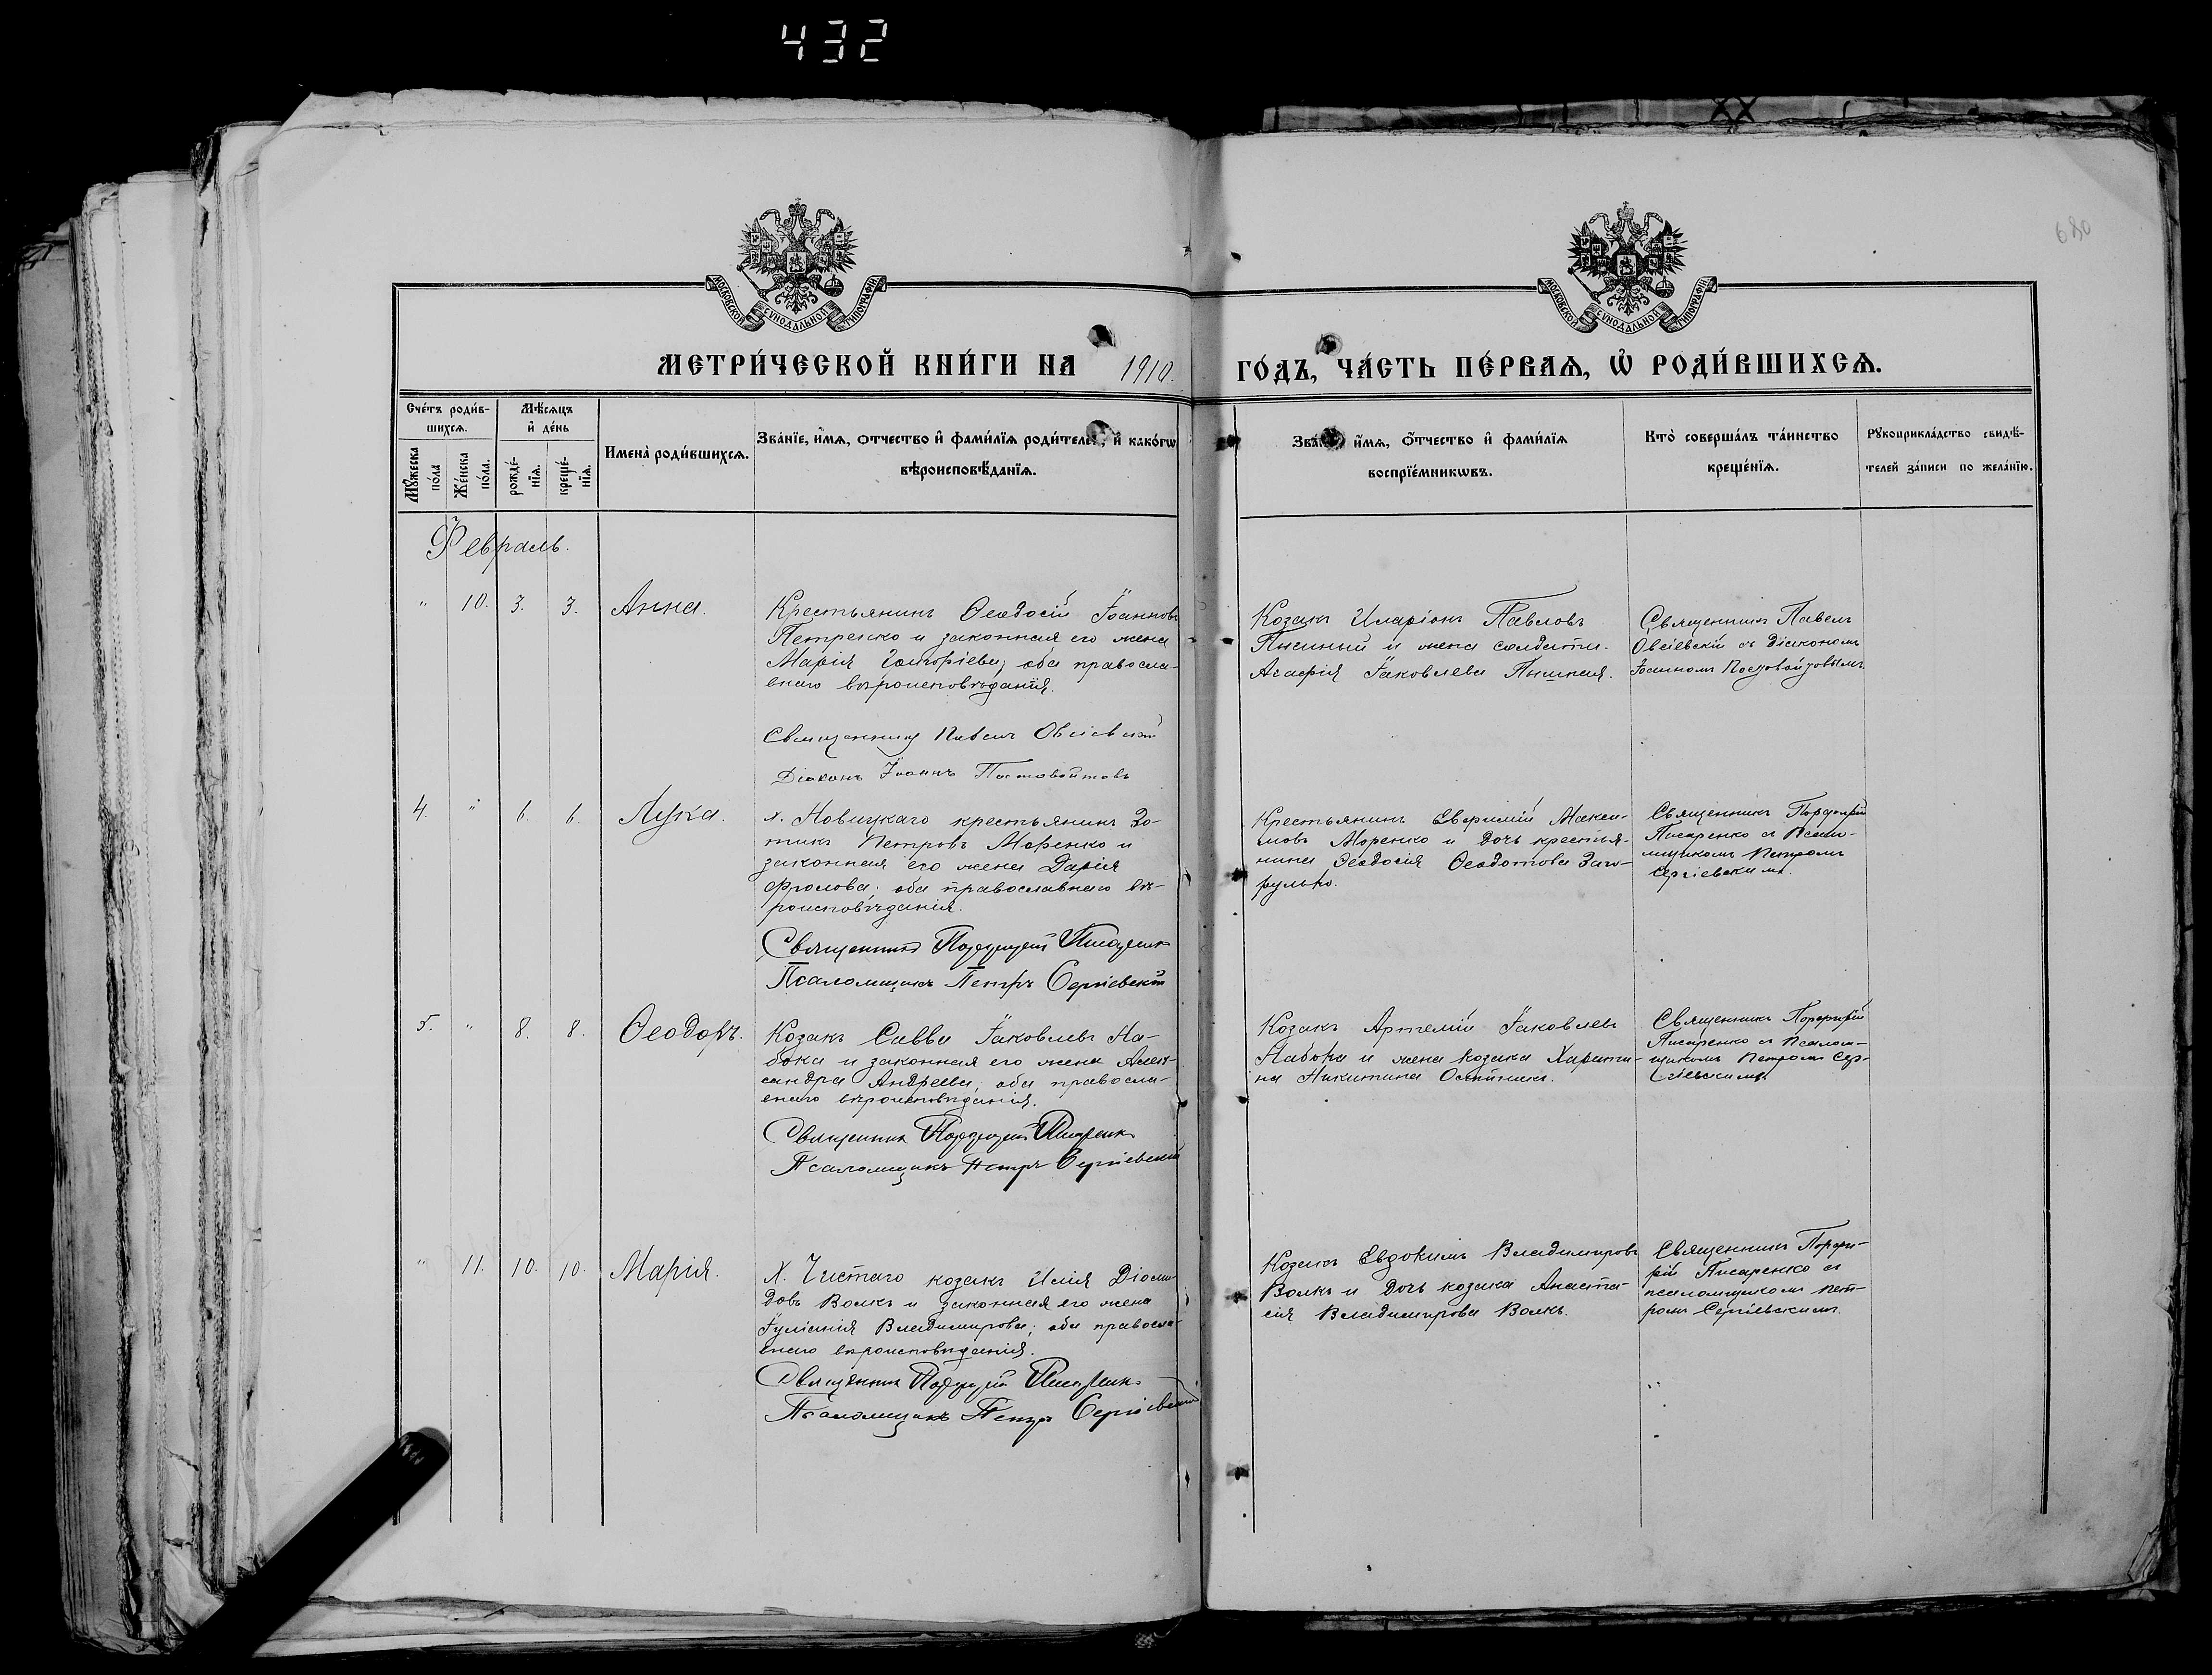 432
680
МОСКОВСКОЙ СУНОДАЛЬНОЙ ТИПОГРАФІИ
МОСКОВСКОЙ СУНОДАЛЬНОЙ ТИПОГРАФІИ
МЕТРИ́ЧЕСКОЙ КНИ́ГИ НА 1910. ГО́ДЪ, ЧА́СТЬ ПЕ́РВАѦ, Ѡ҆ РОДИ́ВШИХСѦ.
Сче́тъ роди́в-
шихсѧ.
Мꙋ́жеска
по́ла
Же́нска
по́ла.
Мѣ́сѧцъ
и҆ де́нь
рожде́-
нїѧ.
креще́-
нїѧ.
Имена̀ роди́вшихсѧ.
Зва́нїе, и҆́мѧ, ѻ҆́тчество и҆ фами́лїѧ роди́телей, и҆ како́гѡ
вѣроисповѣ́данїѧ.
Зва́ и҆́мѧ, ѻ҆́тчество и҆ фами́лїѧ
воспрїе́мникѡвъ.
Кто̀ соверша́лъ та́инство
креще́нїѧ.
Рꙋкоприкла́дство свидѣ́-
телей за́писи по жела́нїю.
Февраль.
" 10. 3. 3. Анна.
Крестьянинъ Ѳеодосій Іоанновъ
Петренко и законная его жена
Марія Григоріева; оба правосла-
внаго вѣроисповѣданія.
Священникъ Павелъ Овсіевскій
Діаконъ Іоаннъ Постовойтовъ
Козакъ Иларіонъ Павловъ
Пышный и жена солдата
Агафія Іаковлева Пышная.
Священникъ Павелъ
Овсіевскій съ діакономъ
Іоанномъ Постовойтовымъ
4. " 6. 6. Лука.
х. Новицкаго крестьянинъ Зо-
тикъ Петровъ Моренко и
законная его жена Дарія
Фролова; оба православнаго вѣ-
роисповѣданія.
Священникъ Порфирій Писаренко
Псаломщикъ Петръ Сергіевскій
Крестьянинъ Евфимій Макси-
мовъ Моренко и дочь крестья-
нина Ѳеодосія Ѳеодотова Заго-
рулько.
Священникъ Порфирій
Писаренко съ Псало-
мщикомъ Петромъ
Сергіевскимъ.
5. " 8. 8. Ѳеодоръ.
Козакъ Савва Іаковлевъ На-
бока и законная его жена Алек-
сандра Андреева; оба правосла-
внаго вѣроисповѣданія.
Священникъ Порфирій Писаренко
Псаломщикъ Петръ Сергіевскій
Козакъ Артемій Іаковлевъ
Набока и жена козака Харити-
на Никитина
Священникъ Порфирій
Писаренко съ Псалом-
щикомъ Петромъ Сер-
гіевскимъ.
" 11. 10. 10. Марія.
Х. Чистаго козакъ Илія Діоми-
довъ Волкъ и законная его жена
Іуліанія Владимирова; оба правосла-
внаго вѣроисповѣданія.
Священникъ Порфирій Писаренко
Псаломщикъ Петръ Сергіевскій
Козакъ Евдокимъ Владимировъ
Волкъ и дочь козака Анаста-
сія Владимирова Волкъ.
Священникъ Порфи-
рій Писаренко съ
псаломщикомъ Пет-
ромъ Сергіевскимъ.